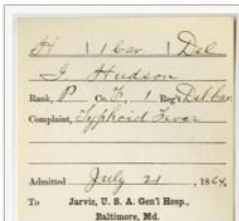 H | 1 Cav | Del
J Hudson
Rank, P Co. F, 1 Reg't Del. Cav
Complaint, Typhoid Fever
Admitted July 21, 1864,
To Jarvis, U. S. A. Gen'l Hosp.,
Baltimore, Md.